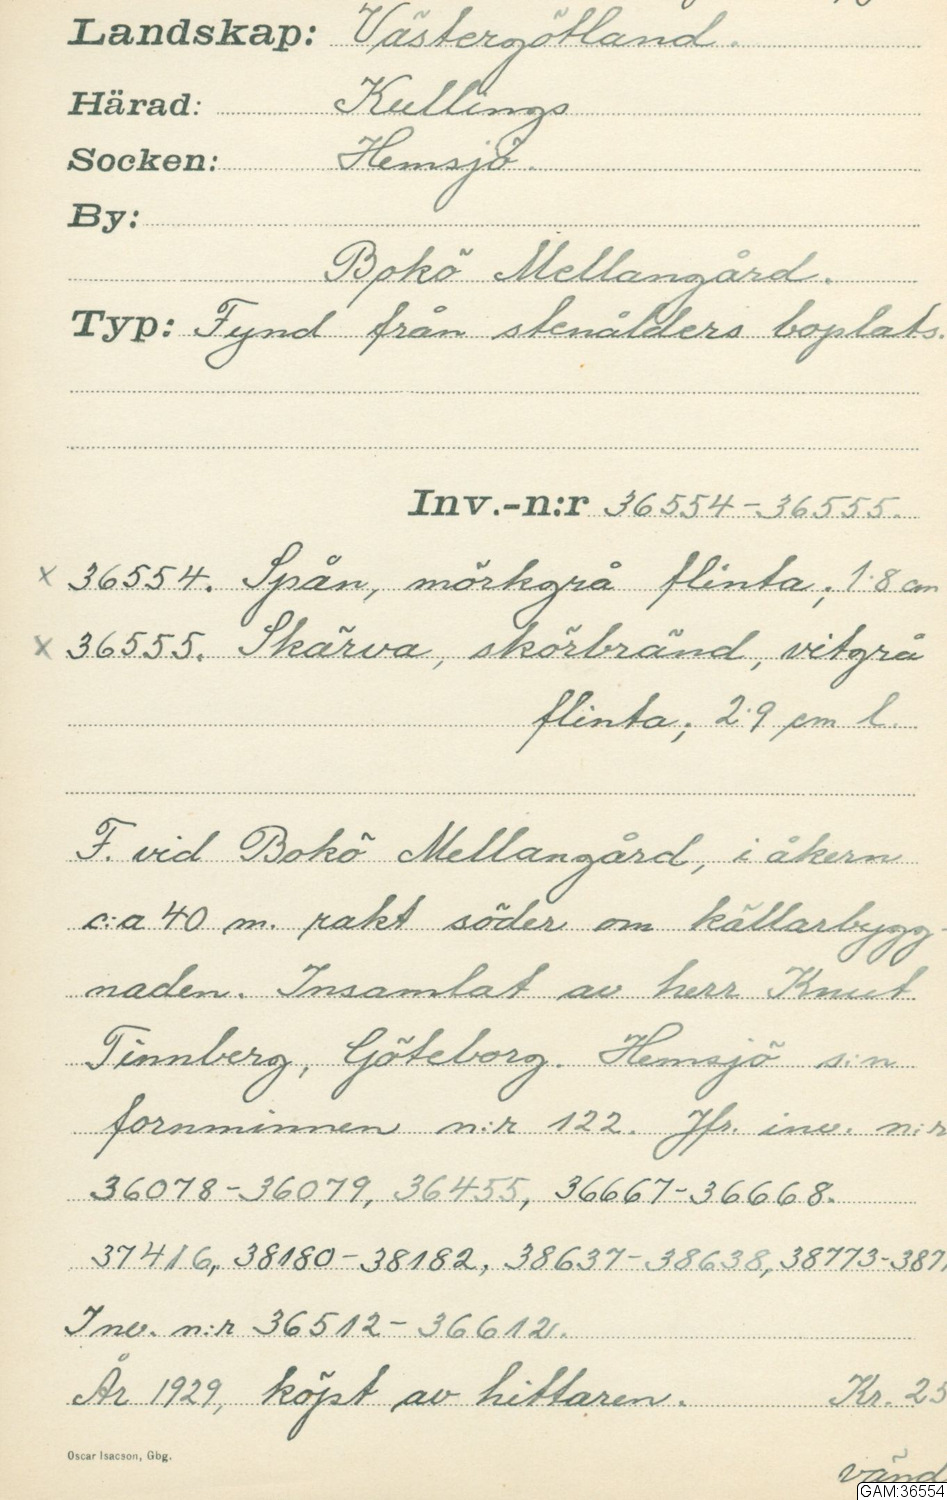 Landskap: Västergötland.
Härad: Kullings
Socken: Hemsjö.
By:
Bokö Mellangård.
Typ: Fynd från stenålders boplats.
Inv.-n:r 36554-36555.
x 36554. Spån, mörkgrå flinta; 1.8 cm
x 36555. Skärva, skörbränd, vitgrå
flinta; 2.9 cm l.
F. vid Bokö Mellangård, i åkern
c:a 40 m. rakt söder om källarbygg-
naden. Insamlat av herr Knut
Tinnberg, Göteborg. Hemsjö s:n
fornminnen n:r 122. Jfr. inv. n:r
36078-36079, 36455, 36667-36668.
37416, 38180-38182, 38637-38638, 38773-387
Inv. n:r 36512-36612.
År 1929, köpt av hittaren. Kr. 25
Oscar Isacson, Gbg.
vänd
GAM:36554